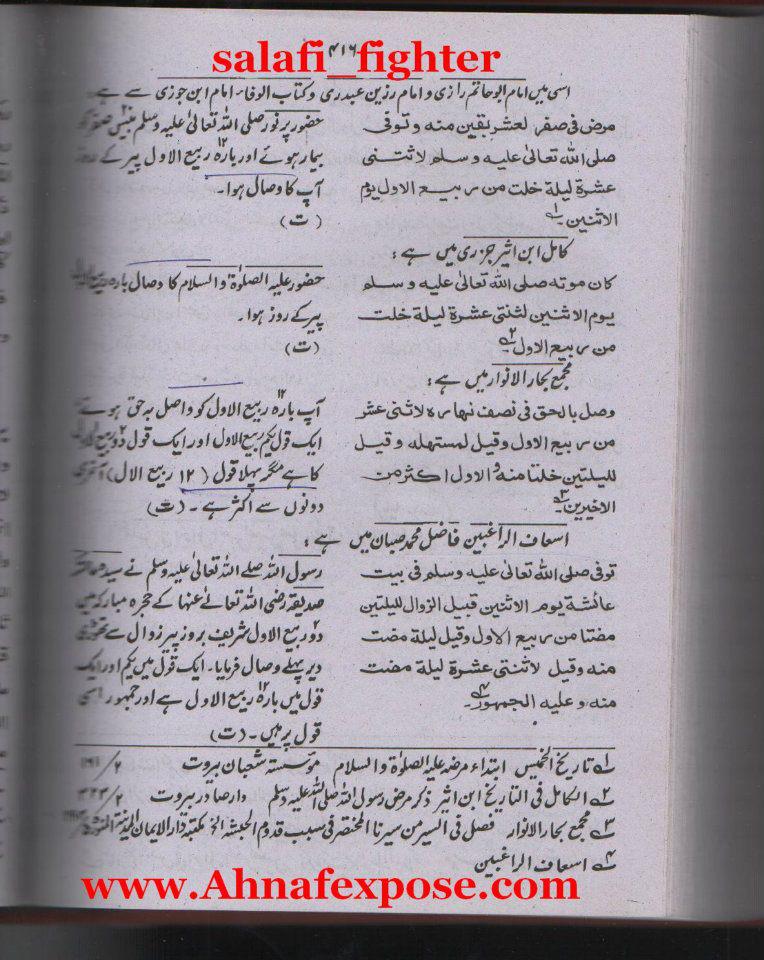 ۴۱۶
salafi_fighter
اسی میں امام ابوحاتم رازی و امام رزین عبدری و کتاب الوفاء امام ابن جوزی سے ہے:
مرض فی صفر لعشر بقین منہ و توفی
صلی اللہ تعالیٰ علیہ وسلم لاثنتی
عشرۃ لیلۃ خلت من ربیع الاول یوم
الاثنین۔۱
حضور پرنور صلی اللہ تعالیٰ علیہ وسلم بیس صفر کو
بیمار ہوئے اور بارہ ۱۲ ربیع الاول پیر کے روز
آپ کا وصال ہوا۔
(ت)
کامل ابن اثیر جزری میں ہے:
کان موتہ صلی اللہ تعالیٰ علیہ وسلم
یوم الاثنین لثنتی عشرۃ لیلۃ خلت
من ربیع الاول۔۲
حضور علیہ الصلوٰۃ والسلام کا وصال بارہ ربیع الاول
پیر کے روز ہوا۔
(ت)
مجمع بحار الانوار میں ہے:
وصل بالحق فی نصف نہارہ لاثنی عشر
من ربیع الاول وقیل لمستھلہ وقیل
للیلتین خلتا منہ والاول اکثر من
الاخیرین۔۳
آپ بارہ ۱۲ ربیع الاول کو واصل بہ حق ہوئے
ایک قول یکم ربیع الاول اور ایک قول دو ۲ ربیع الاول
کا ہے مگر پہلا قول (۱۲ ربیع الال) آخری
دونوں سے اکثر ہے۔ (ت)
اسعاف الراغبین فاضل محمد صبان میں ہے:
توفی صلی اللہ تعالیٰ علیہ وسلم فی بیت
عائشۃ یوم الاثنین قبیل الزوال للیلتین
مضتا من ربیع الاول وقیل لیلۃ مضت
منہ وقیل لاثنتی عشرۃ لیلۃ مضت
منہ وعلیہ الجمہور۔۴
رسول اللہ صلے اللہ تعالیٰ علیہ وسلم نے سیدہ عائشہ
صدیقہ رضی اللہ تعالےٰ عنہا کے حجرہ مبارکہ میں
دو ۲ ربیع الاول شریف بروز پیر زوال سے تھوڑی
دیر پہلے وصال فرمایا۔ ایک قول میں یکم اور ایک
قول میں بارہ ۱۲ ربیع الاول ہے اور جمہور اسی
قول پر ہیں۔ (ت)
۱ تاریخ الخمیس ابتداء مرضہ علیہ الصلوٰۃ والسلام مؤسستہ شعبان بیروت ۲/ ۱۶۱
۲ الکامل فی التاریخ ابن اثیر ذکر مرض رسول اللہ صلی اللہ علیہ وسلم دار صادر بیروت ۲/ ۳۲۳
۳ مجمع بحار الانوار فصل فی السیر من سیرنا المختصر فی سبب قدوم الحبشہ الخ مکتبہ دار الایمان المدینۃ المنورہ
۴ اسعاف الراغبین
www.Ahnafexpose.com